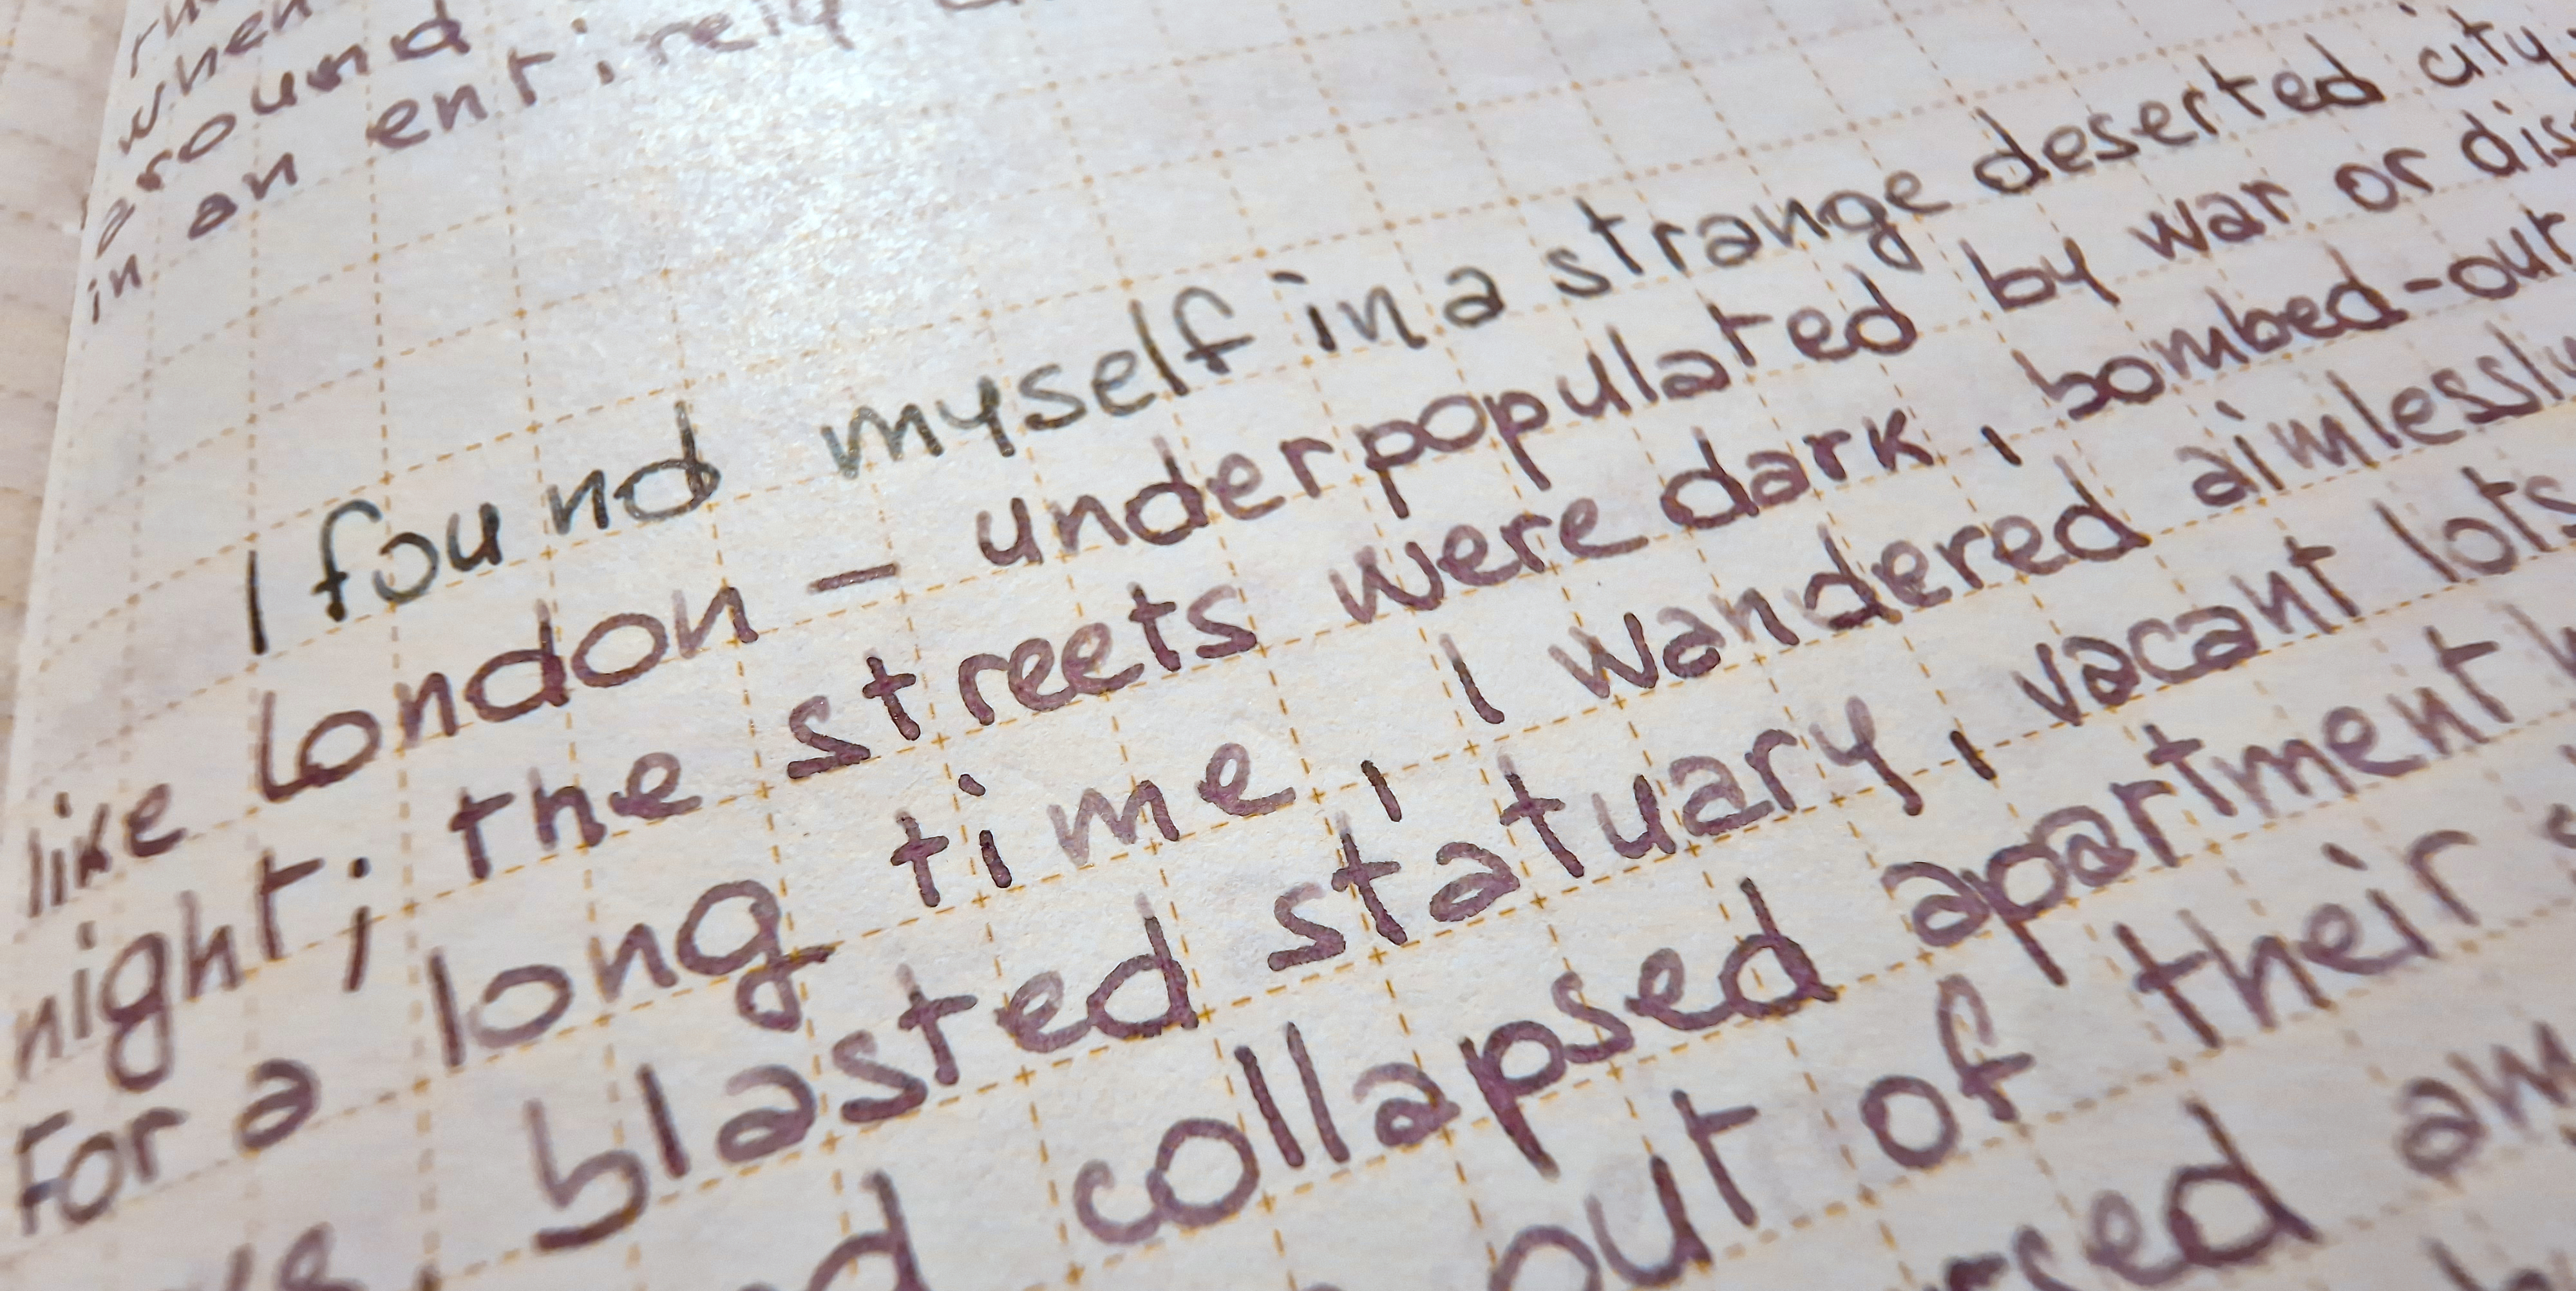 when
around
in an entirely
I found myself in a strange deserted city
like London – underpopulated by war or
night; the streets were dark, bombed-out
For a long time, I wandered aimlessly
blasted statuary, vacant lots
collapsed apartment
out of their